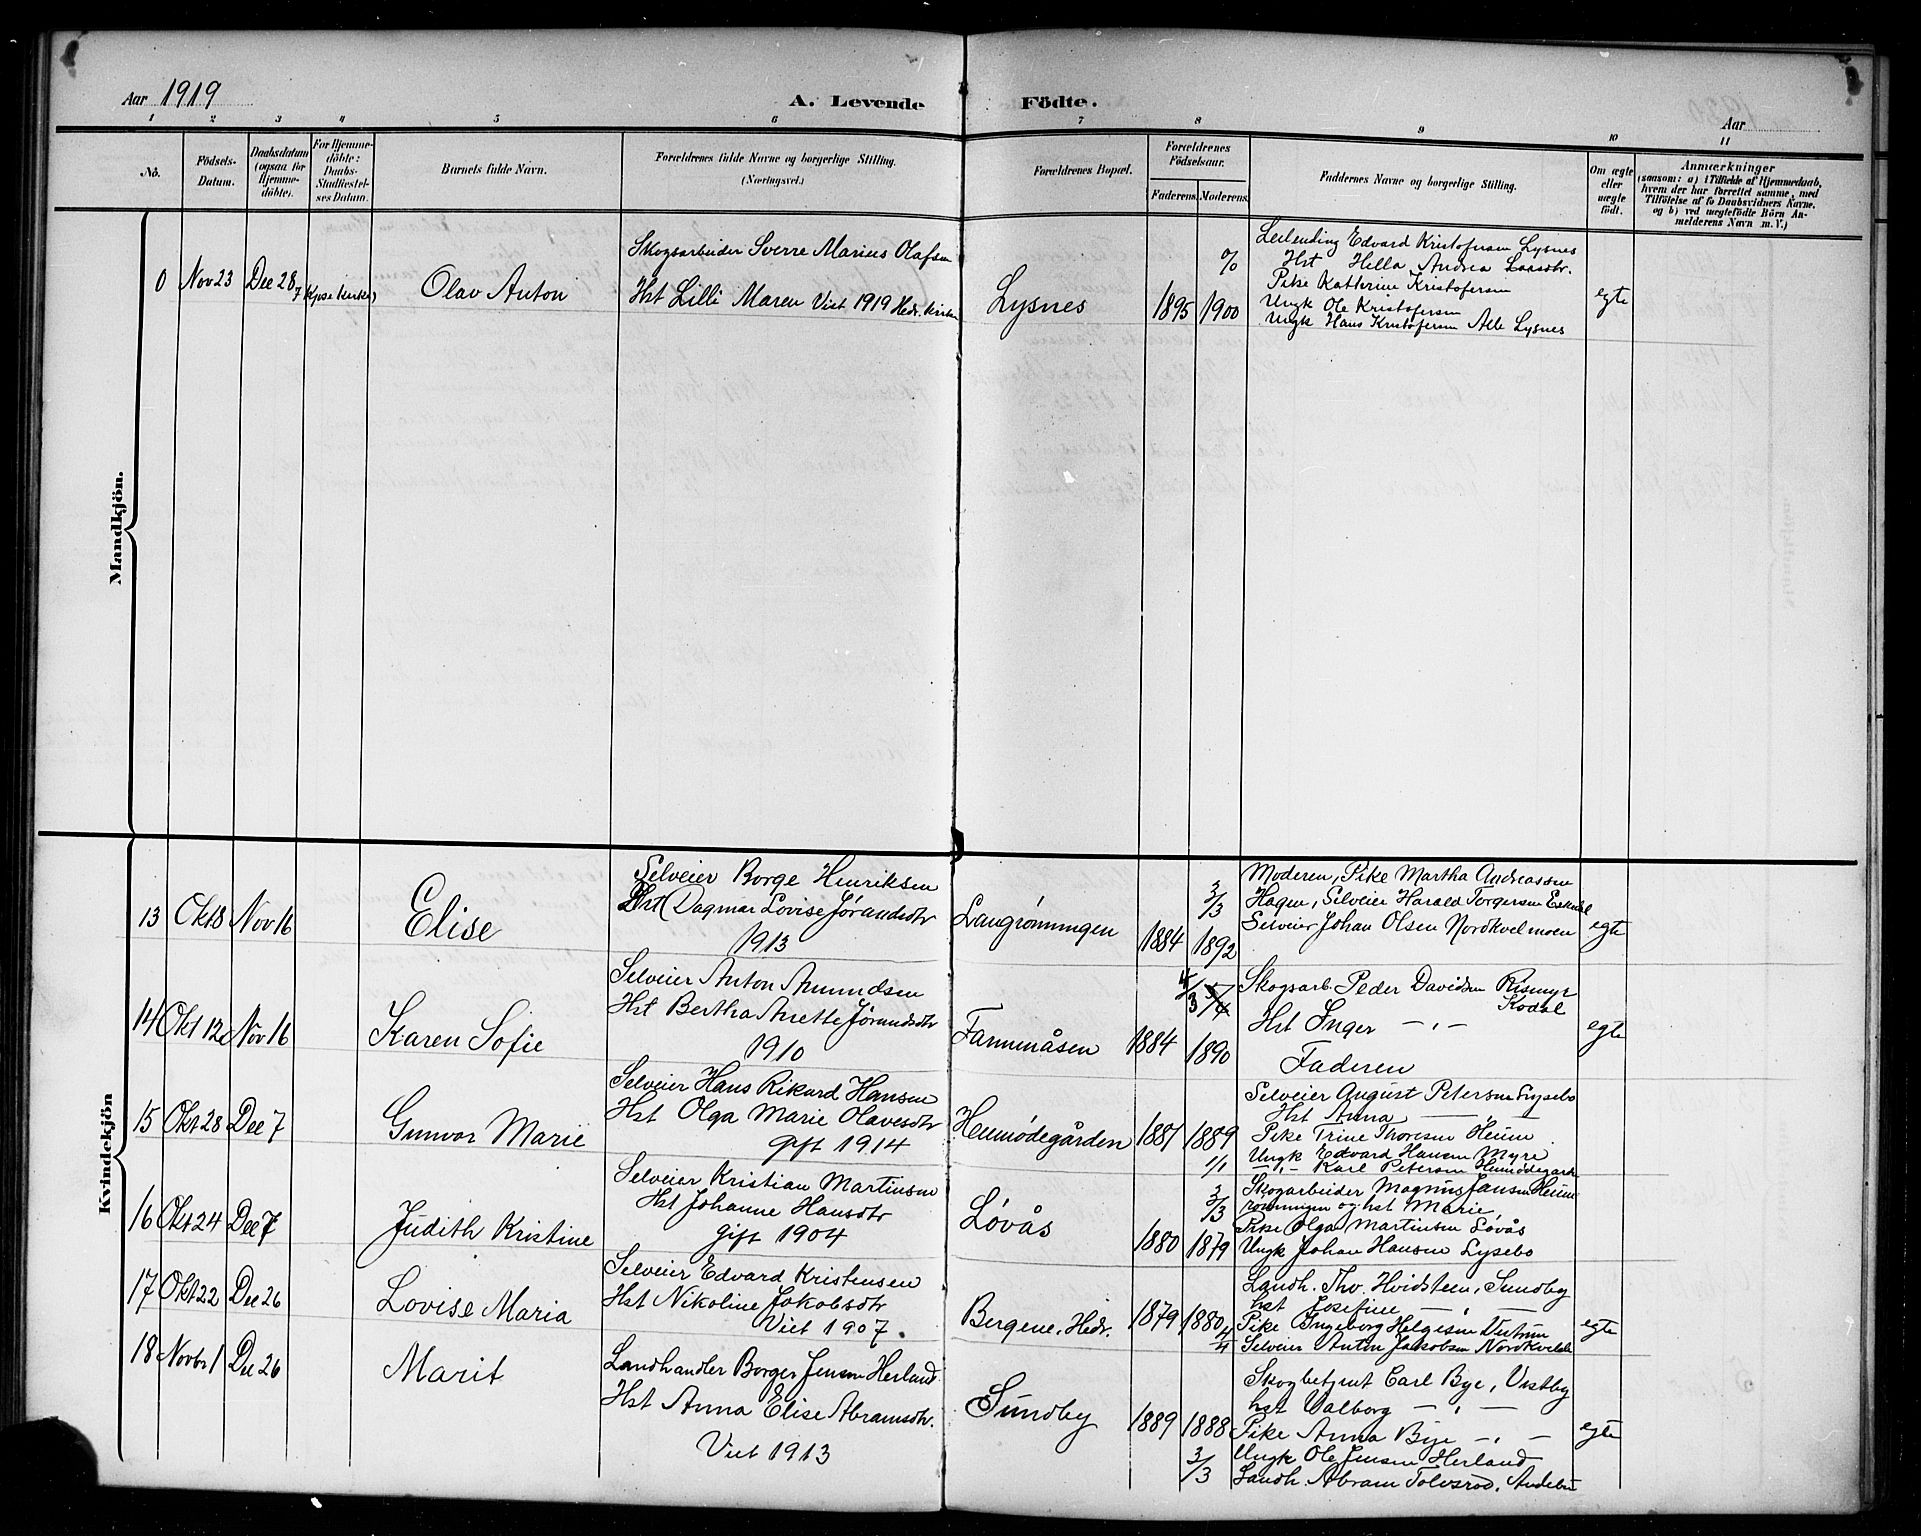 Aar 1919
A. Levende Födte.
Aar
1 2 3 4 5 6 7 8 9 10 11
No.
Födsels-
Datum.
Daabsdatum
(ogsaa for
Hjemme-
döbte).
For Hjemme-
döbte:
Daabs-
Stadfæstel-
ses Datum.
Barnets fulde Navn.
Forældrenes fulde Navne og borgerlige Stilling.
(Næringsvei.)
Forældrenes Bopæl.
Forældrenes
Födselsaar.
Faderens. Moderens.
Faddernes Navne og borgerlige Stilling.
Om ægte
eller
uægte
født.
Anmærkninger
(saasom: a) i Tilfælde af Hjemmedaab,
hvem der har forrettet samme, med
Tilföielse af to Daabsvidners Navne.
og b) ved uægtefödte Börn An-
melderens Navn m. V.)
Mandkjön.
0 Nov 23 Dec 28
Olav Anton
Skogsarbeider Sverre Marius Olafsen
Hst Lilli Maren Viet 1919 Hedr. kirke
Lysnes
1895 1900
%
Leilending Edvard Kristofersen Lysnes
Hst Hella Andrea
Pike Kathrine Kristofersen
Ungk Ole Kristofersen
Ungk Hans Kristofersen Alle Lysnes
egte
Kvindekjön
13 Okt 8 Nov 16
Elise
Selveier Borge Henriksen
Hst (Dagmar Lovise Jørandsdtr
1913
Langrønningen
1884 1892
3/3
Moderen, Pike Martha Andreassen
Hagen, Selveier Harald Torgersen
Selveier Johan Olsen Nordkvelmoen
egte
14 Okt 12 Nov 16
Karen Sofie
Selveier Anton Amundsen
Hst Bertha Anette Jørandsdtr
1910
Fannemåsen
1884 1890
4/3
Skogsarb Peder Davidsen Rismyr
Kodal
Hst Inger — " —
Faderen
egte
15 Okt 28 Dec 7
Gunvor Marie
Selveier Hans Rikard Hansen
Hst Olga Marie Olavesdtr
gift 1914
Heimødegården
1887 1889
1/1
Selveier August Petersen Lysebo
Hst Anna —
Pike Trine Thoresen Heum
Ungk Edvard Hansen Myre
— " — Karl Petersen Heimødegården
16 Okt 24 Dec 7
Judith Kristine
Selveier Kristian Martinsen
Hst Johanne Hansdtr
gift 1904
Løvås
1880 1879
3/3
Skogarbeider Magnus Jansen Heim
rønningen og hst Marie
Pike Olga Martinsen Løvås
Ungk Johan Hansen Lysebo
17 Okt 22 Dec 26
Lovise Maria
Selveier Edvard Kristensen
Hst Nikoline Jakobsdtr
Viet 1907.
Bergene. Hedr.
1879 1880
4/4
Landh. Tho. Hvidsteen, Sundby
hst Josefine — " —
Pike Ingeborg Helgesen
Selveier Anton Jakobsen
egte
18 Novbr 1 Dec 26
Marit
Landhandler Borger Jensen Herland.
Hst Anna Elise Abramsdtr.
Viet 1913
Sundby
1889 1888
3/3
Skogbetjent Carl Bye, Vestby
hst Valborg — " —
Pike Anna Bye — " —
Ungk Ole Jensen Herland
Landh. Abram Tolvsrød, Andebu
egte